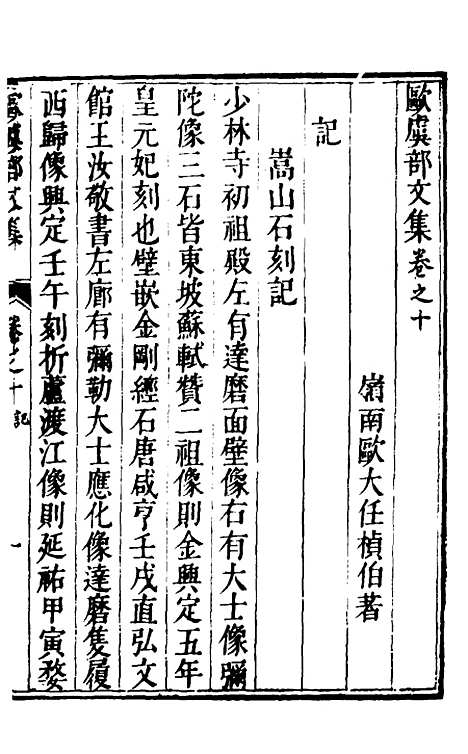 歐虞部文集卷之十
嶺南歐大任楨伯著
記
嵩山石刻記
少林寺初祖殿左有達磨面壁像右有大士像彌
陀像三石皆東坡蘇軾贊二祖像則金興定五年
皇元妃刻也壁嵌金剛經石唐咸亨壬戌直弘文
館王汝敬書左廊有彌勒大士應化像達磨隻履
西歸像興定壬午刻折蘆渡江像則延祐甲寅婺
歐虞部文集 卷之十 記 一